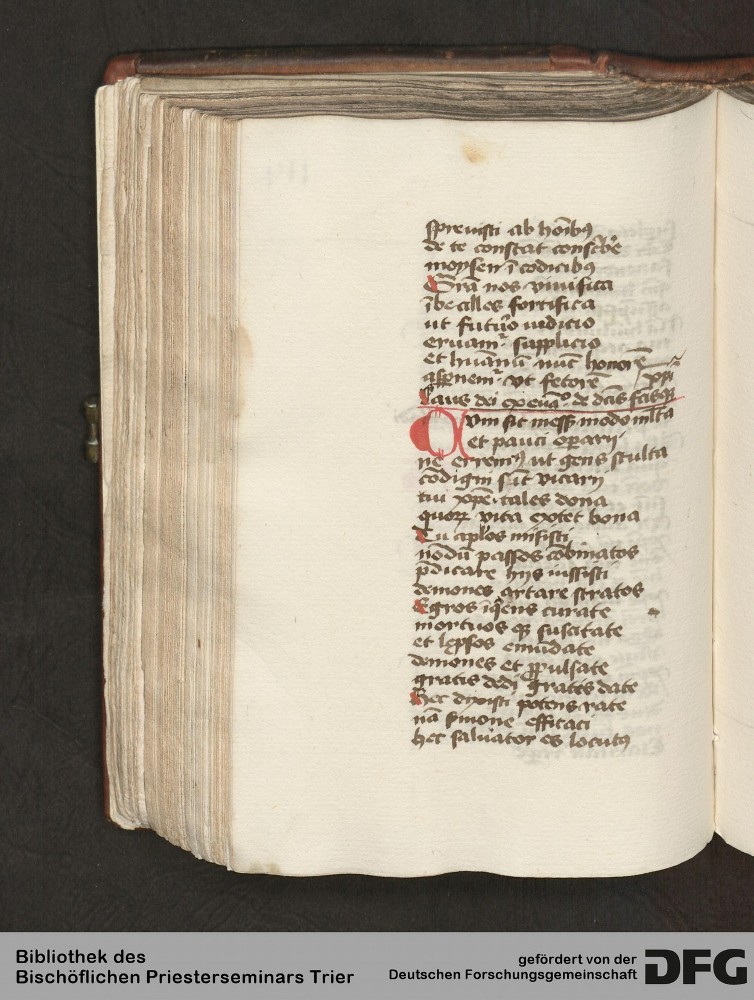 spreuisti ab hoı̄bꝯ
de te constat consc̄bē
moysen ī codicibꝯ
Grā nos viuifica
ībecilles fortifica
ut futuro iudicio
eruamr supplicio
et hūanū nūc honorē
aspernemr ut fetorē xp̄i
Laus dei ex euāo de dictis
Cum sit messis modo mlta
et pauci oparij
ne erremꝯ ut gens stulta
cōdigni sūt vicarij
tui xp̄e tales dona
quoꝝ vita extet bona
Tu aplos misisti
nōdū passos cōbinatos
p̄dicare hijs iussisti
demones artare stratos
Egros īqͥens curate
mortuos qꝫ suscitate
et lepsos emūdate
demones et ꝓpulsate
gratis dedi gratis date
Hec dixisti potens rate
nā smone efficaci
hec saluator es locutꝯ
Bibliothek des
Bischöflichen Priesterseminars Trier
gefördert von der
Deutschen Forschungsgemeinschaft
DFG